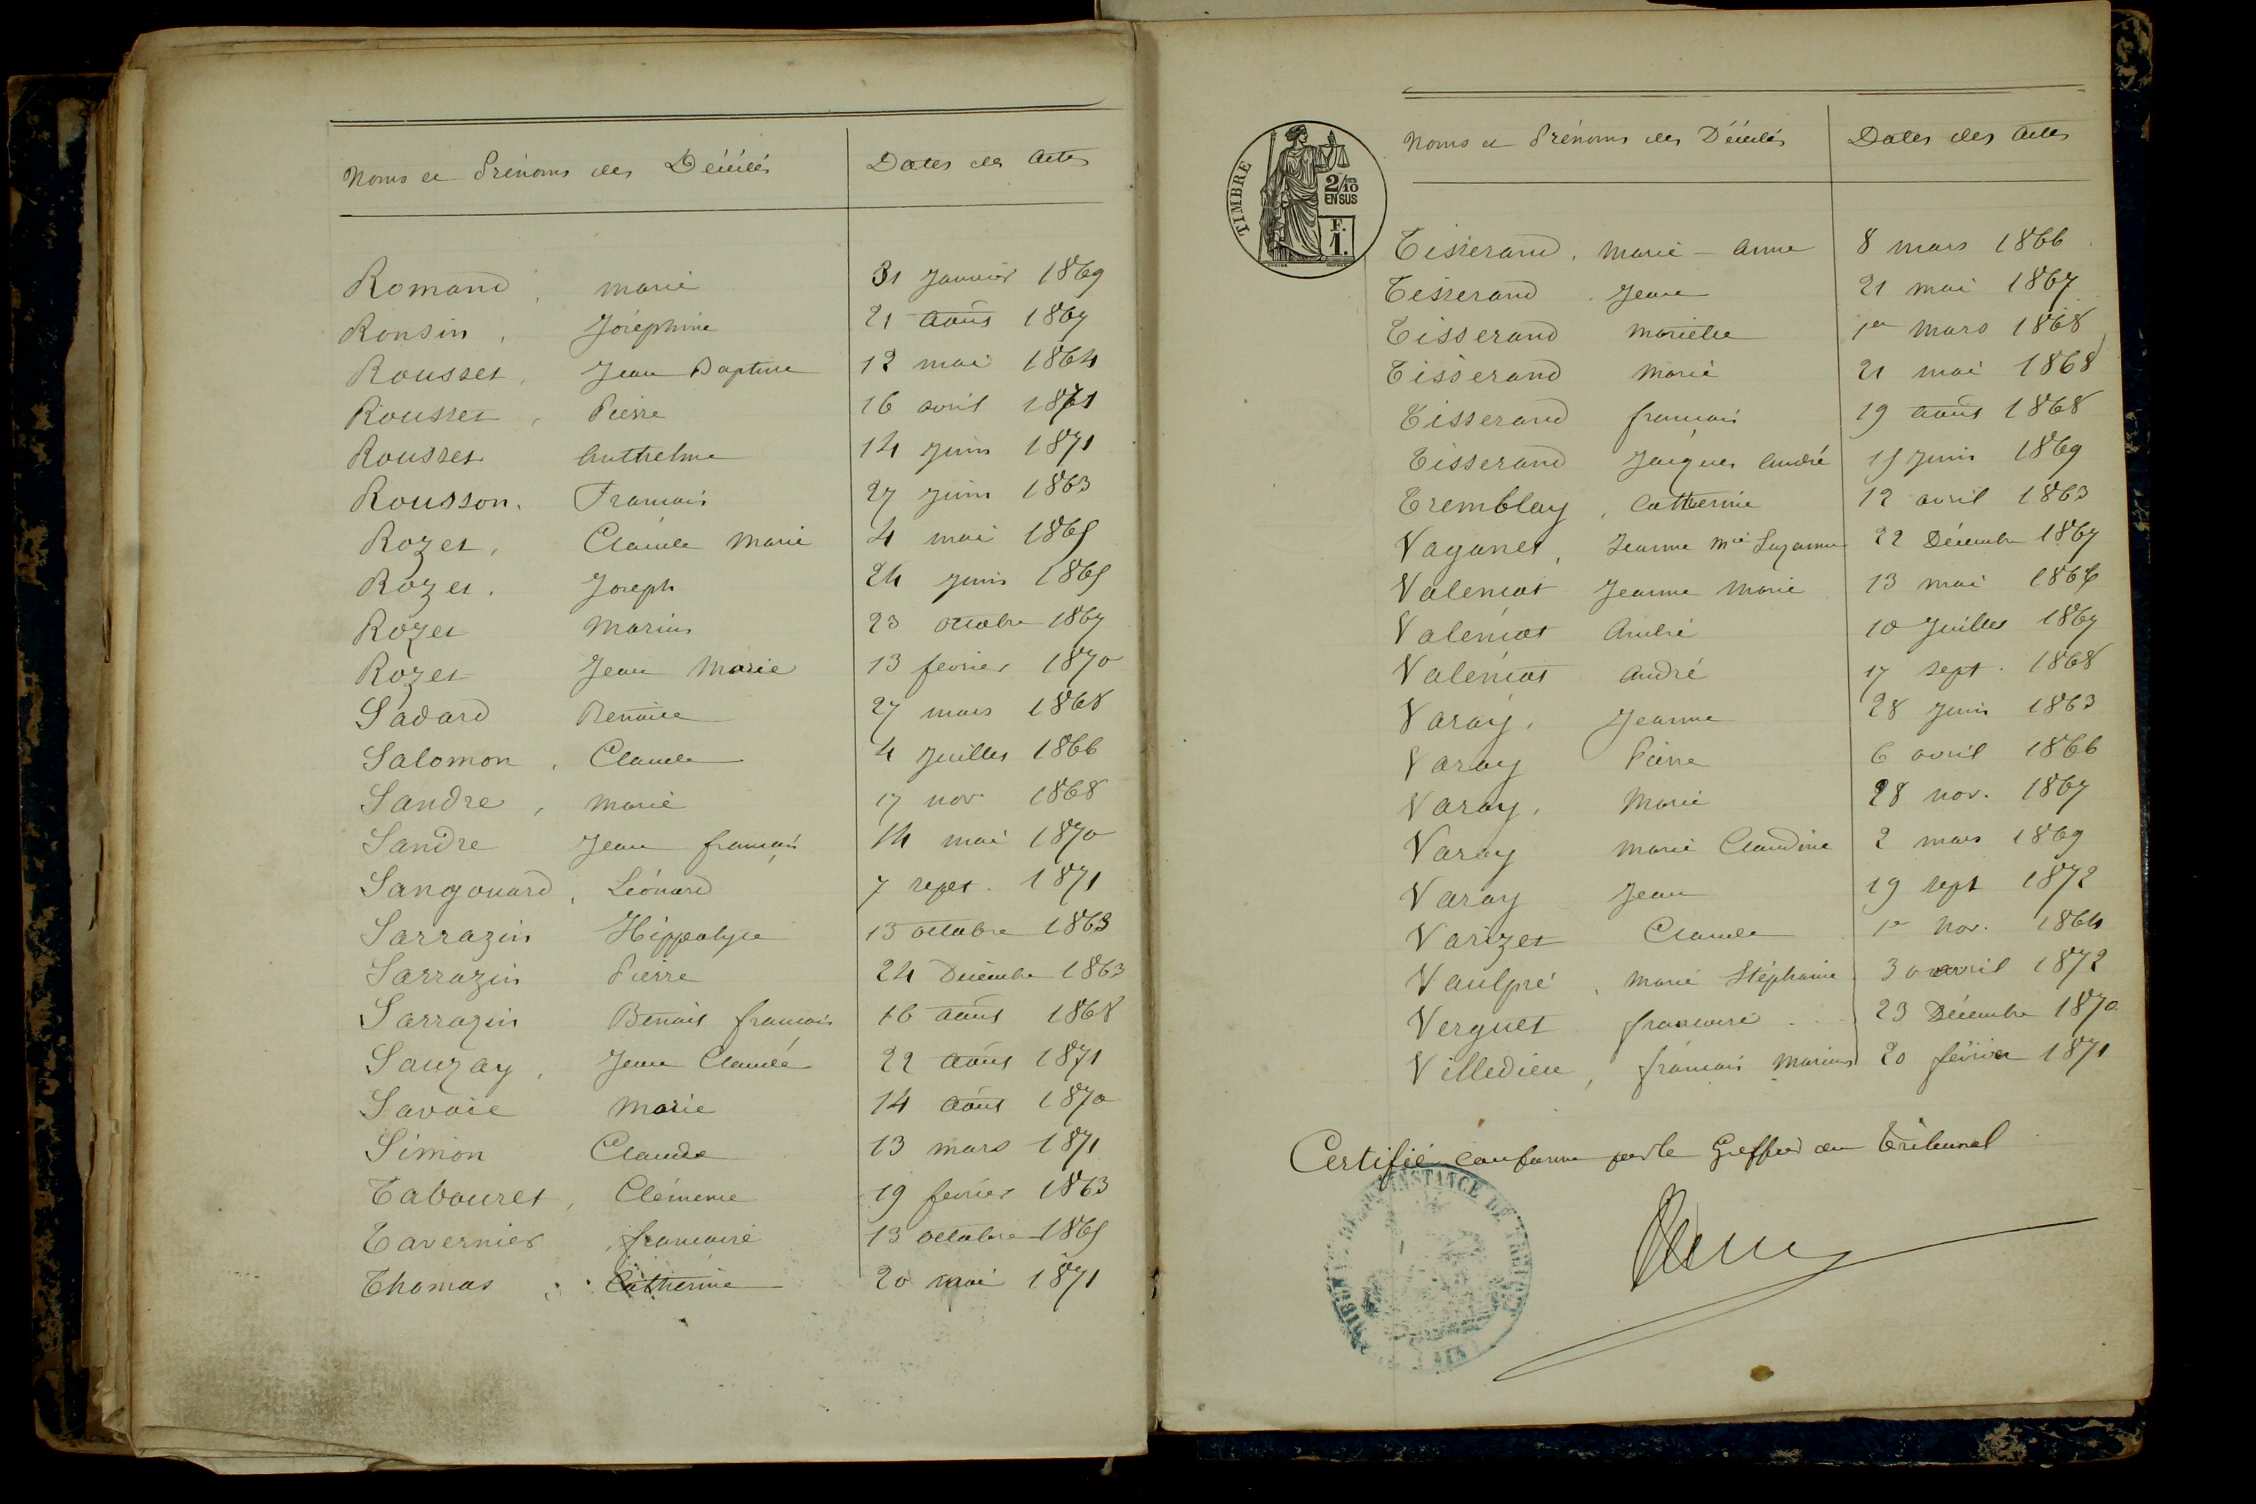 Noms et Prénoms des Décédés Dates des Actes
Romand, Marie 31 Janvier 1869
Ronsin, Joséphine 21 Août 1867
Rousset, Jean Baptiste 12 mai 1864
Rousset, Pierre 16 avril 1871
Rousset Anthelme 14 Juin 1871
Rousson, François 27 Juin 1863
Rozet, Claude Marie 4 mai 1865
Rozet, Joseph 24 Juin 1865
Rozet Marius 23 octobre 1867
Rozet Jean Marie 13 fevrier 1870
Sadard Benoite 27 mars 1868
Salomon, Claude 4 Juillet 1866
Sandre, Marie 17 nov. 1868
Sandre Jean françois 14 mai 1870
Sangouard, Léonard 7 sept. 1871
Sarrazin Hippolyte 13 octobre 1863
Sarrazin Pierre 24 Décembre 1863
Sarrazin Benoit françois 16 août 1868
Sauzay, Jean Claude 22 août 1871
Savoie Marie 14 août 1870
Simon Claude 13 mars 1871
Tabouret, Clémence 19 fevrier 1863
Tavernier, françoise 13 octobre 1865
Thomas, Catherine 20 mai 1871
TIMBRE
2/10
EN SUS
F.
1.
Noms et Prénoms des Décédés Dates des Actes
Tisserand, Marie-Anne 8 mars 1866
Tisserand Jean 21 mai 1867
Tisserand Mariette 1er Mars 1868
Tisserand Marie 21 mai 1868
Tisserand françois 19 août 1868
Tisserand Jacques André 15 Juin 1869
Tremblay, Catherine 12 avril 1863
Vaganet, Jeanne Mie Suzanne 22 Décembre 1867
Valençot Jeanne Marie 13 mai 1866
Valençot André 10 Juillet 1867
Valençot André 17 sept. 1868
Varay, Jeanne 28 Juin 1863
Varay Pierre 6 avril 1866
Varay, Marie 28 nov. 1867
Varay Marie Claudine 2 mars 1869
Varay Jean 19 sept 1872
Varizet Claude 1er Nov. 1864
Vaulpré, Marie Stéphanie 30 avril 1872
Verguet françoise 23 Décembre 1870
Villedieu, françois Marius 20 février 1871
Certifié conforme par le Greffier du Tribunal
INSTANCE DE TREVOUX
(AIN)